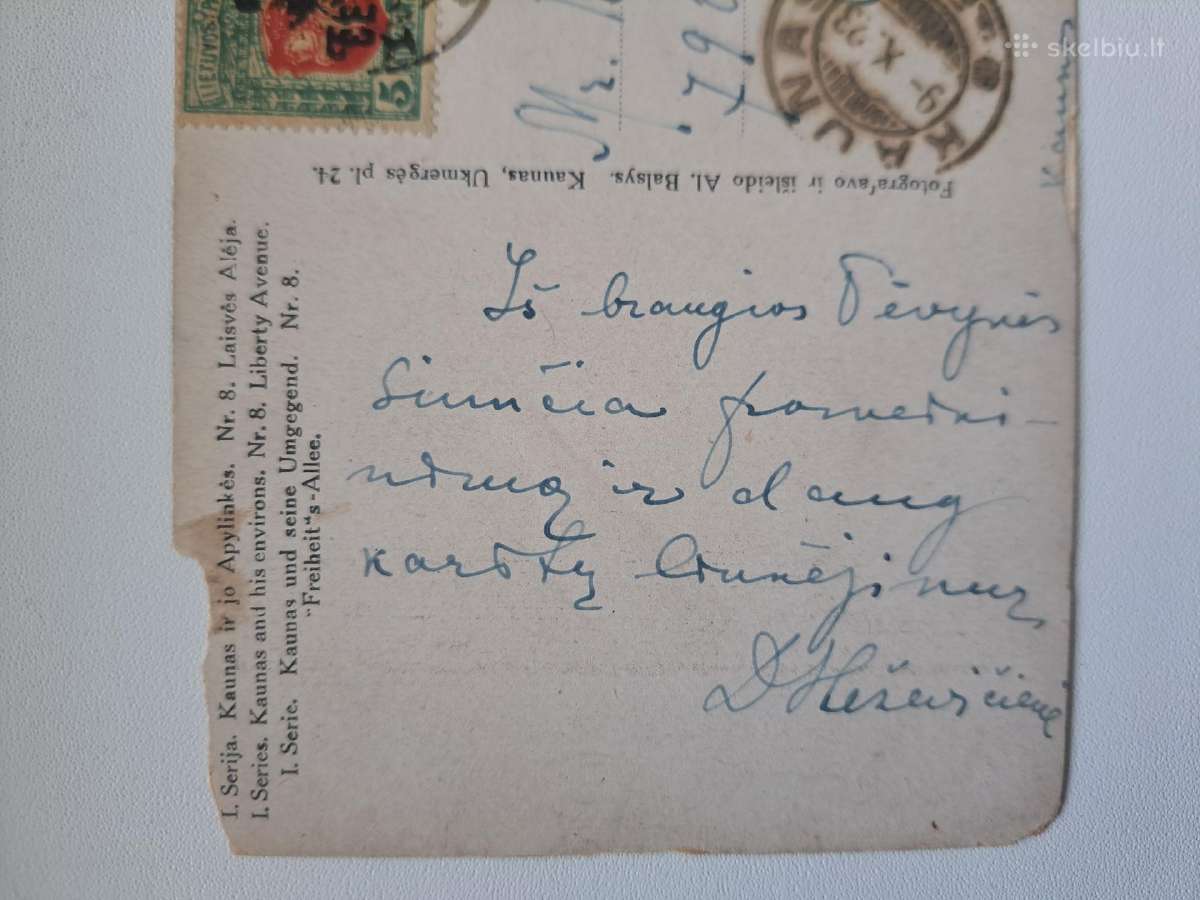 Iš brangios Tėvynės
Siunčia pasveiki-
nimą ir daug
karštų linkėjimų
I. Serija. Kaunas ir jo Apylinkės. Nr. 8. Laisvės Alėja.
I. Series. Kaunas and his environs. Nr. 8. Liberty Avenue.
I. Serie. Kaunas und seine Umgegend. Nr. 8.
"Freiheit"s-Allee.
Fotografavo ir išleido Al. Balsys. Kaunas, Ukmergės pl. 24.
Mr.
KAUNAS
9 - X. 23
5
Kaunas
skelbiu.lt